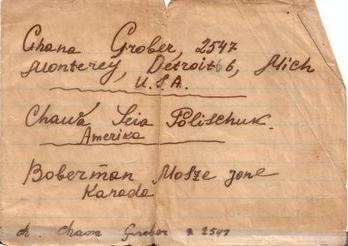 Chana Grober, 2547
Monterey, Detroit 6, Mich
U.S.A.
Chawa Seia Polischuk.
Amerika
Boberman Mosze Jone
Kanada
ch. Chana Grober 2547